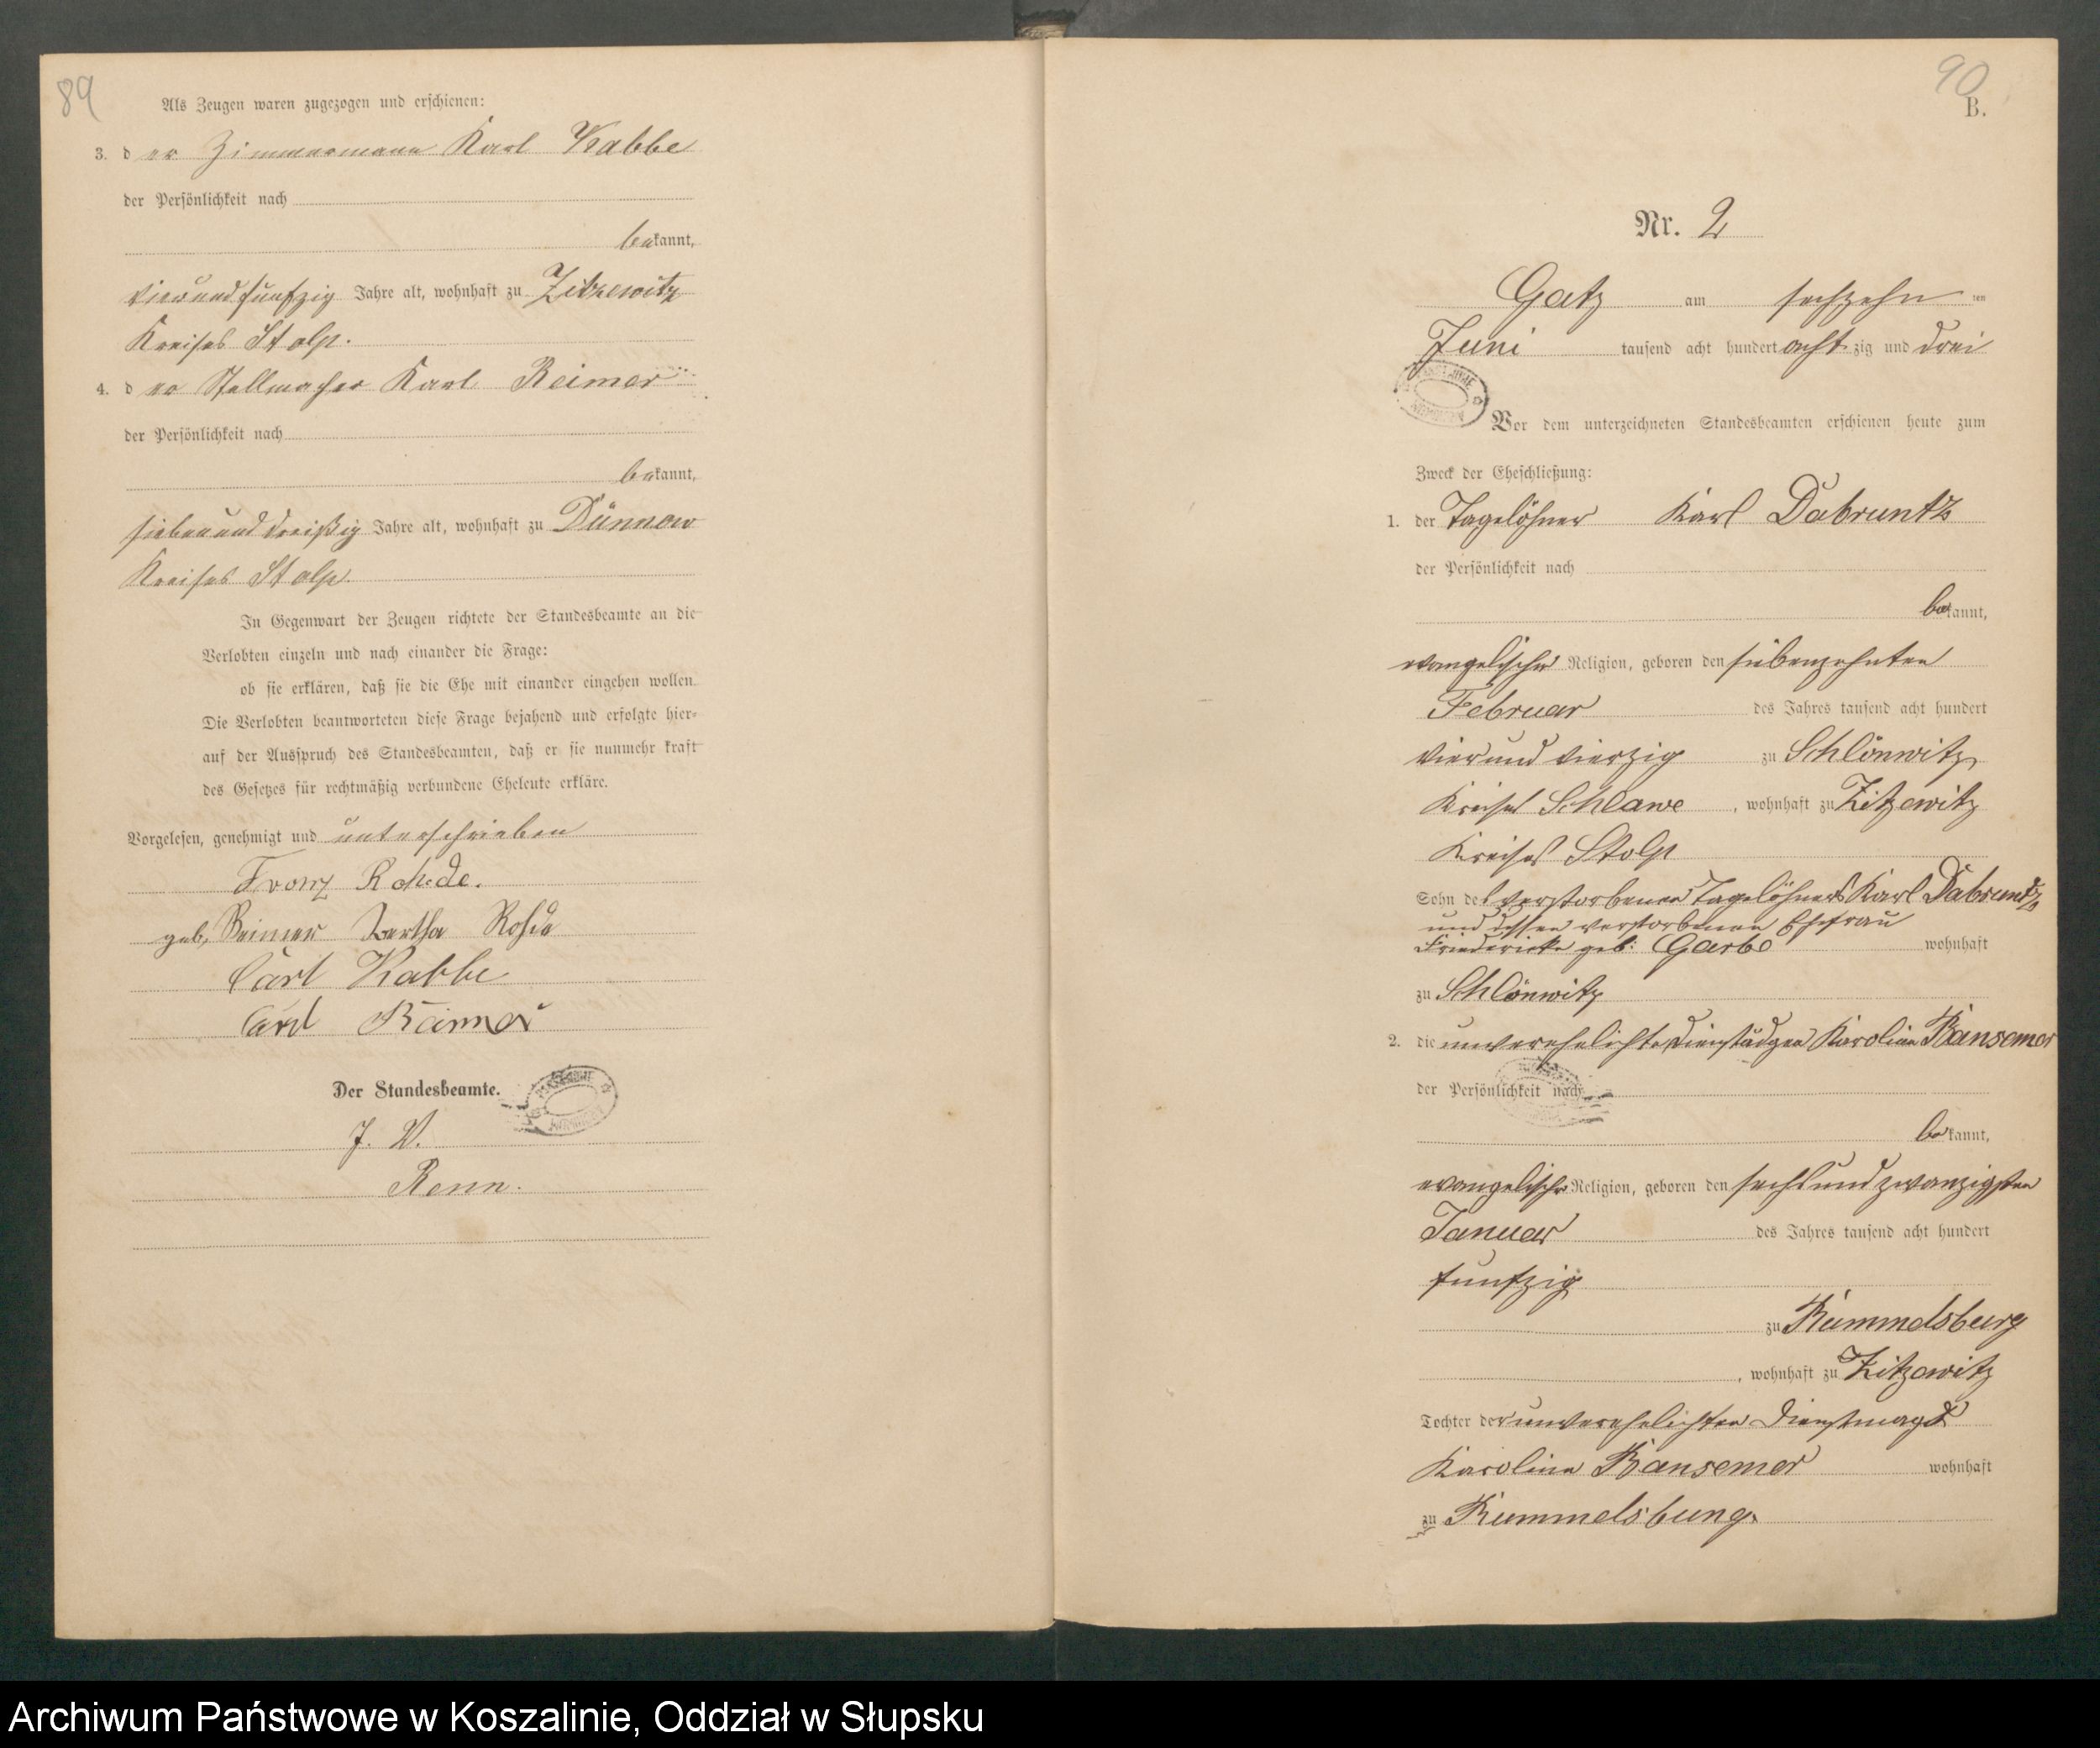 89
Als Zeugen waren zugezogen und erschienen:
3. der Zimmermann Karl Kabbe
der Persönlichkeit nach
bekannt,
vierundfünfzig Jahre alt, wohnhaft zu Zitzewitz
Kreises Stolp.
4. der Stellmacher Karl Reimer
der Persönlichkeit nach
bekannt,
siebenunddreißig Jahre alt, wohnhaft zu Dünnow
Kreises Stolp.
In Gegenwart der Zeugen richtete der Standesbeamte an die
Verlobten einzeln und nach einander die Frage:
ob sie erklären, daß sie die Ehe mit einander eingehen wollen.
Die Verlobten beantworteten diese Frage bejahend und erfolgte hier-
auf der Ausspruch des Standesbeamten, daß er sie nunmehr kraft
des Gesetzes für rechtmäßig verbundene Eheleute erkläre.
Vorgelesen, genehmigt und unterschrieben
Franz Rohde.
geb. Reimer Bertha Rohde
Carl Kabbe
Carl Reimer
Der Standesbeamte.
J. V.
Renn.
90
B.
Nr. 2
Gatz am sechzehn ten
Juni tausend acht hundert achtzig und drei
Vor dem unterzeichneten Standesbeamten erschienen heute zum
Zweck der Eheschließung:
1. der Tagelöhner Karl Dabruntz
der Persönlichkeit nach
bekannt,
evangelischer Religion, geboren den siebenzehnten
Februar des Jahres tausend acht hundert
vier und vierzig zu Schlönwitz,
Kreises Schlawe, wohnhaft zu Zitzewitz
Kreises Stolp
Sohn des verstorbenen Tagelöhners Karl Dabruntz
und dessen verstorbenen Ehefrau
Friedericke geb. Garbe wohnhaft
zu Schlönwitz
2. die unverehelichte Karoline Bansemer
der Persönlichkeit nach
bekannt,
evangelischer Religion, geboren den sechsundzwanzigsten
Januar des Jahres tausend acht hundert
funfzig
zu Rummelsburg
, wohnhaft zu Zitzewitz
Tochter der unverehelichten Dienstmagd
Karoline Bansemer wohnhaft
zu Rummelsburg.
Archiwum Państwowe w Koszalinie, Oddział w Słupsku